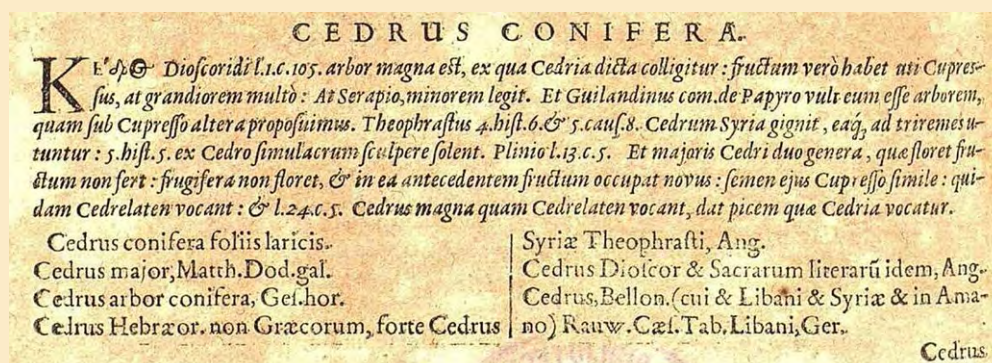 CEDRUS CONIFERA.
KE'δρ@ Dioſcoridi l.1.c.105. arbor magna eſt, ex qua Cedria dicta colligitur : fructum verò habet uti Cupreſ-
ſus, at grandiorem multò : At Serapio, minorem legit. Et Guilandinus com. de Papyro vult eum eſſe arborem,
quam ſub Cupreſſo altera propoſuimus. Theophraſtus 4. hiſt. 6. & 5. cauſ. 8. Cedrum Syria gignit, eaq́; ad triremes u-
tuntur : 5. hiſt. 5. ex Cedro ſimulacrum ſculpere ſolent. Plinio l. 13. c. 5. Et majoris Cedri duo genera, quæ floret fru-
ctum non fert : frugifera non floret, & in ea antecedentem fructum occupat novus : ſemen ejus Cupreſſo ſimile : qui-
dam Cedrelaten vocant : & l. 24. c. 5. Cedrus magna quam Cedrelaten vocant, dat picem quæ Cedria vocatur.
Cedrus conifera foliis laricis.
Cedrus major, Matth. Dod. gal.
Cedrus arbor conifera, Geſ. hor.
Cedrus Hebræor. non Græcorum, forte Cedrus
Syriæ Theophraſti, Ang.
Cedrus Dioſcor & Sacrarum literarũ idem, Ang.
Cedrus, Bellon. (cui & Libani & Syriæ & in Ama-
no) Rauw. Cæſ. Tab. Libani, Ger.
Cedrus